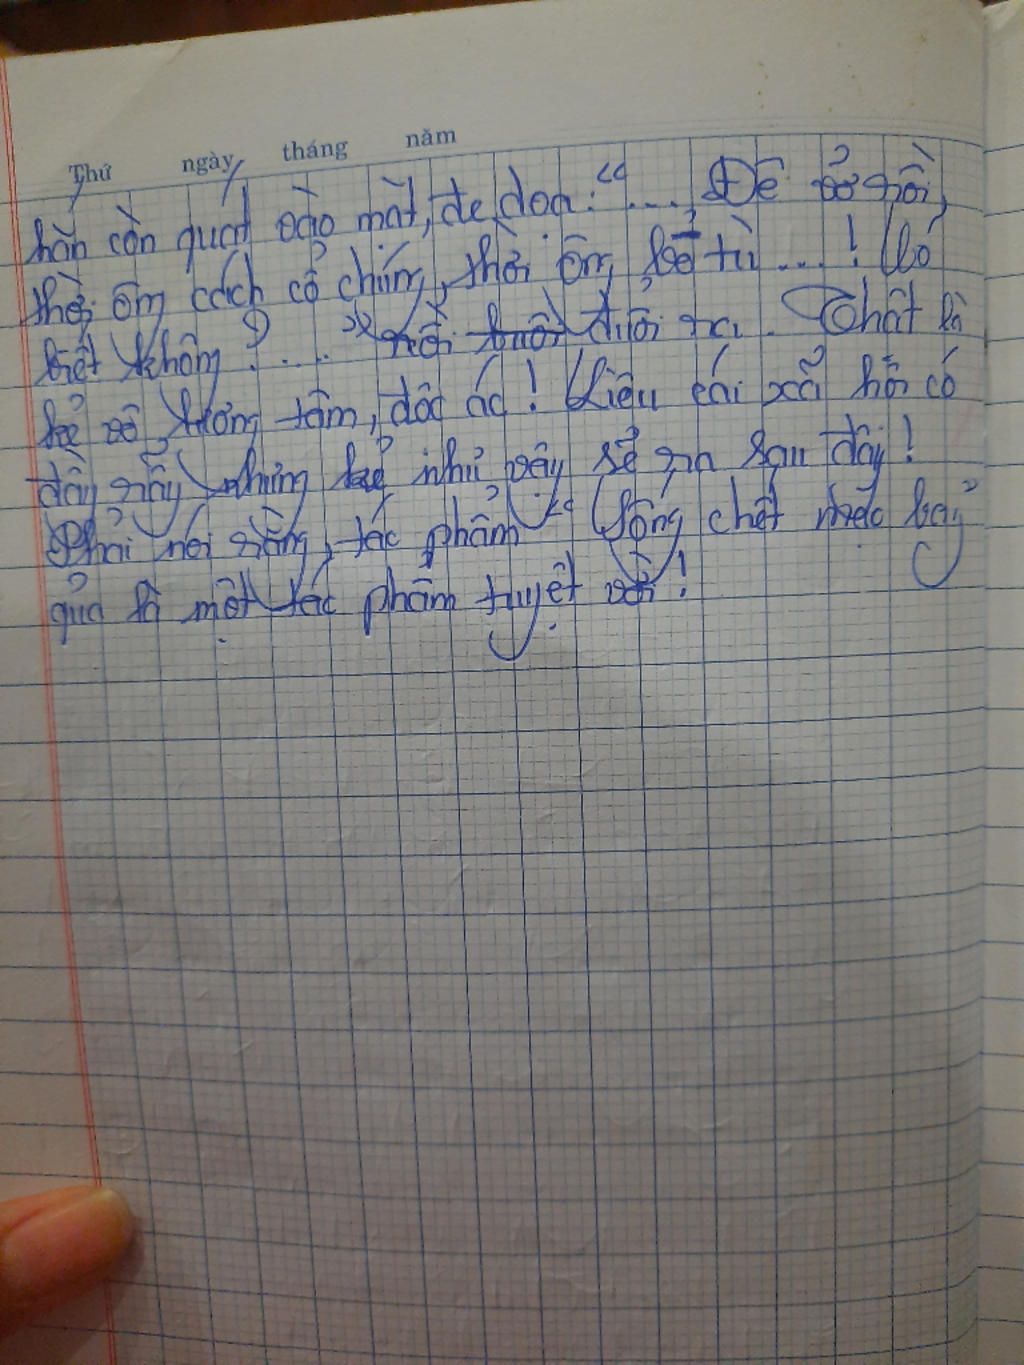 Thứ ngày tháng năm
hắn còn quát vào mặt, đe doạ: "... Đê vỡ rồi,
thời ông cách cổ chúng, thời ông bỏ tù ...! Có
biết không? ...." rồi đuổi ra. Thật là
kẻ vô lương tâm, độc ác! Liệu cái xã hội có
đầy rẫy những kẻ như vậy sẽ ra sau đây!
Phải nói rằng, tác phẩm "Sống chết mặc bay"
quả là một tác phẩm tuyệt vời!